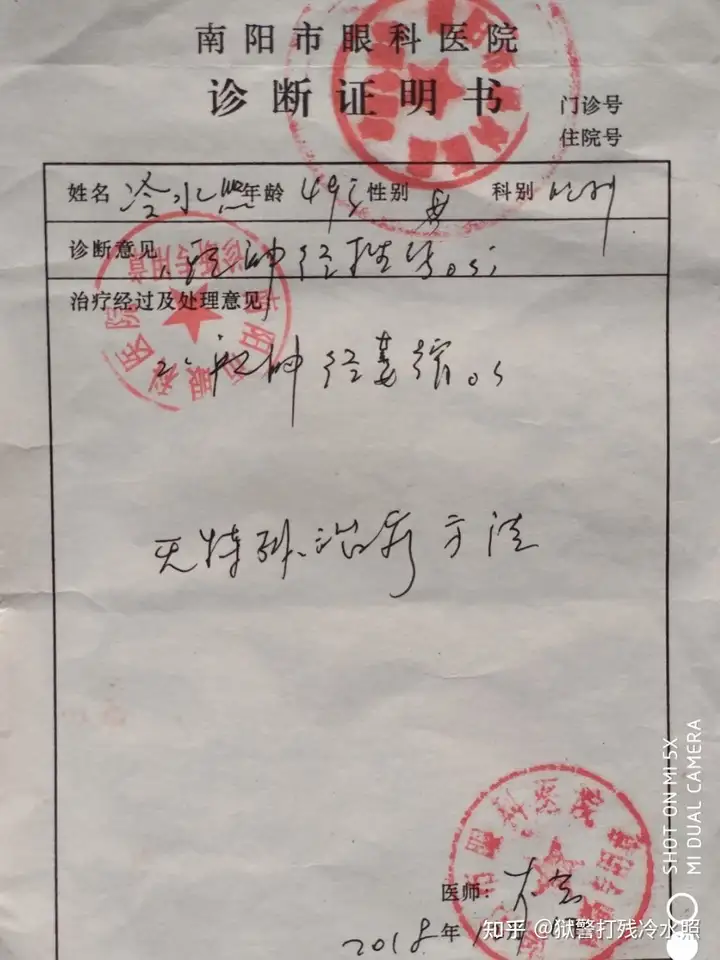 南阳市眼科医院
诊断证明书
门诊号
住院号
姓名 冷水照 年龄 49岁 性别 男 科别 眼科
诊断意见
视神经挫伤。os
治疗经过及处理意见
2、视神经萎缩。os
无特殊治疗方法
医师:
2018年
南阳市眼科医院
诊断专用章
眼科医院
知乎 @狱警打残冷水照
SHOT ON MI 5X
MI DUAL CAMERA